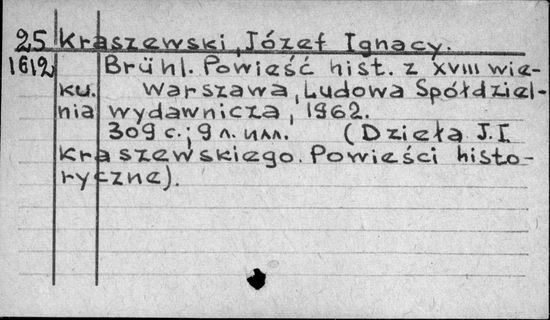 25 Kraszewski, Józef Ignacy.
1612 Brühl. Powieść hist. z XVIII wie-
ku. Warszawa, Ludowa Spółdziel-
nia wydawnicza, 1962.
309 с.; 9 л. илл. (Dzieła J.I.
Kraszewskiego. Powieści histo-
ryczne).